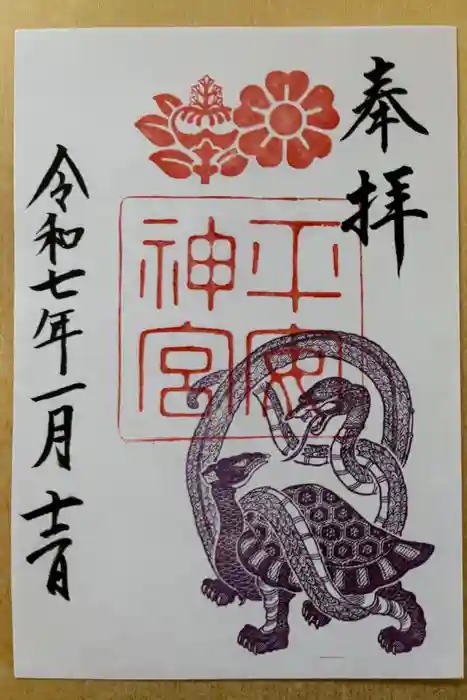 奉拝
平安
神宮
令和七年一月十二日